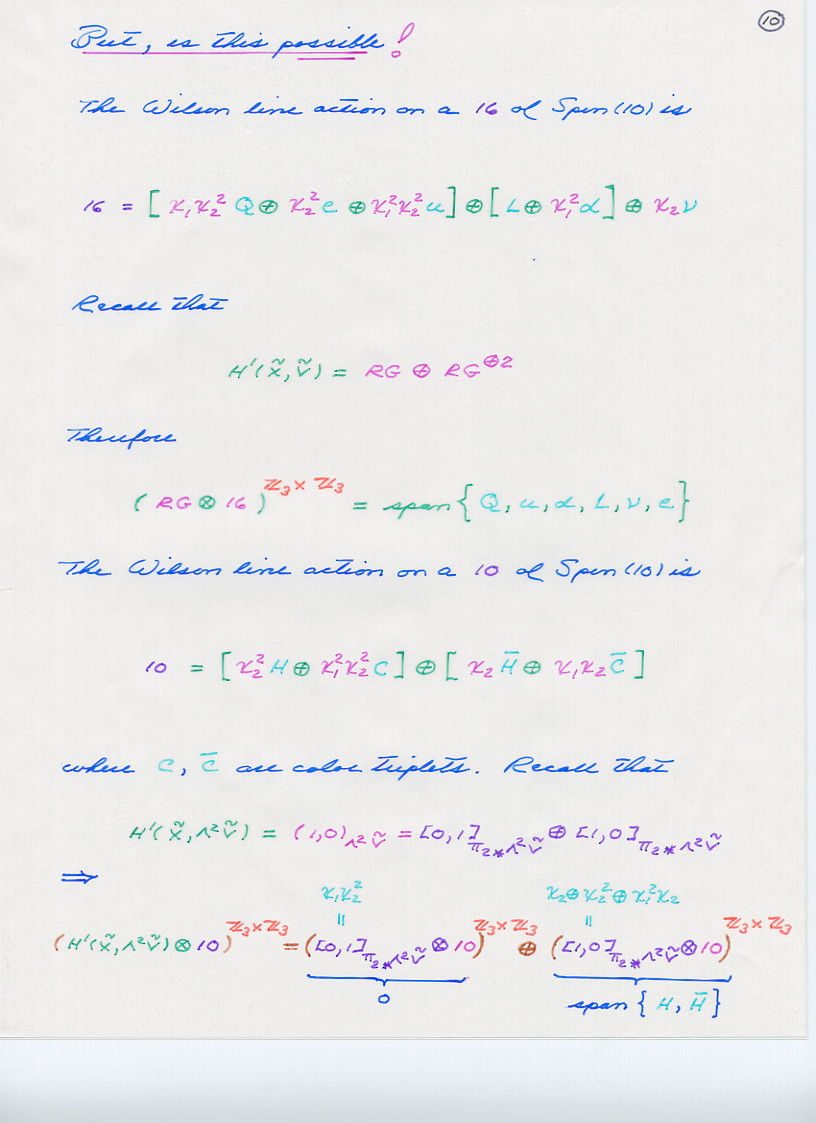 10
But, is this possible!
The Wilson line action on a 16 of Spin(10) is
16 = [χ₁χ₂² Q ⊕ χ₂² e ⊕ χ₁²χ₂² u] ⊕ [L ⊕ χ₁² d] ⊕ χ₂ ν
Recall that
H¹(X̃, Ṽ) = RG ⊕ RG^⊕2
Therefore
(RG ⊗ 16)^ℤ₃×ℤ₃ = span{Q, u, d, L, ν, e}
The Wilson line action on a 10 of Spin(10) is
10 = [χ₂² H ⊕ χ₁²χ₂² C] ⊕ [χ₂ H̄ ⊕ χ₁χ₂ C̄]
where C, C̄ are color triplets. Recall that
H¹(X̃, Λ²Ṽ) = (1,0)_Λ²Ṽ = [0,1]_π₂*Λ²Ṽ ⊕ [1,0]_π₂*Λ²Ṽ
⇒
χ₁χ₂² χ₂⊕χ₂²⊕χ₁²χ₂
= =
(H¹(X̃, Λ²Ṽ) ⊗ 10)^ℤ₃×ℤ₃ = ([0,1]_π₂*Λ²Ṽ ⊗ 10)^ℤ₃×ℤ₃ ⊕ ([1,0]_π₂*Λ²Ṽ ⊗ 10)^ℤ₃×ℤ₃
0 span{H, H̄}